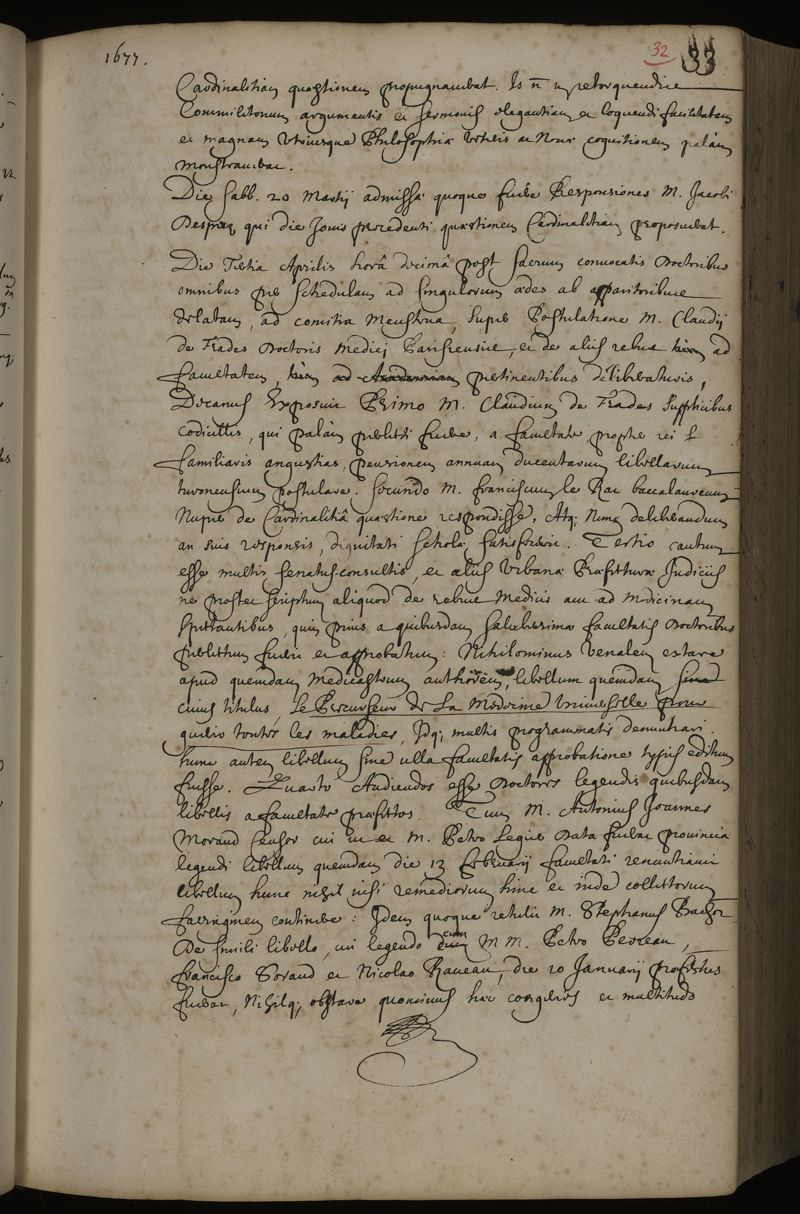 1677.
32
33
Cardinalitiam quæstionem propugnaverat. Is in retorquendis
Commilitonum argumentis et sermonis elegantiam et loquendi facilitatem
et magnam utriusque Philosophiæ veteris ac novæ cognitionem palàm
monstraverat.
Die Sabb. 20 Martij admissæ quoque fuêre Responsiones M. Jacobi
Desprez qui die Jovis præcedenti quæstionem Cardinalitiam proposuerat.
Die Tertia Aprilis horâ decimâ post sacrum convocatis Doctoribus
omnibus per schedulam ad singulorum ædes ab apparitoribus
delatam, ad comitia menstrua, super Postulatione M. Claudij
de Frades Doctoris Medici Parisiensis, et de aliis rebus ad
facultatem, pertinentibus deliberaturis,
Decanus Exposuit Primo M. Claudium de Frades supplicibus
codicillis, qui palàm perlecti fuêre, a facultate propter rei
familiaris angustias, pensionem annuam ducentarum libellarum
turonensium postulare. Secundò M. franciscum le Rat baccalaureum
Nuper de Cardinalitiâ quæstione respondisse, Atq; Nunc deliberandum
an suis responsis, dignitati scholæ satisfecerit. Tertio cautum
esse multis senatus-consultis, et aliis Urbanæ Præfecturæ Judiciis
ne prostet scriptum aliquod de rebus Medicis aut ad Medicinam
spectantibus, quin prius a quibusdam saluberrimæ facultatis Doctoribus
perlectum fuerit et approbatum: Nihilominus venalem extare
apud quemdam Medicastrum authorem, libellum quemdam
cuius titulus, Le Precurseur de La Medecine Universelle pour
guerir toutes les maladies, Idq; multis programmatis denuntiari.
hunc autem libellum sine ulla facultatis approbatione typis editum
fuisse. Quarto Audiendos esse Doctores legendis quibusdam
libellis a facultate præfectos. Tum M. Antonius Joannes
Morand Censor cui ut et M. Petro Legier Data fuerat provincia
legendi libellum quemdam die 13 februarij facultati renuntiavit
libellum hunc nihil nisi remediorum hinc et inde collectorum
farraginem continere: Idem quoque retulit M. Stephanus Bachot
De simili libello, cui legendo cum M M. Petro Perreau,
francisco Sorand et Nicolao Raveau, die 20 Januarij præfectus
fuerat, Nihilq; obstare quominus hæc congeries et multitudo